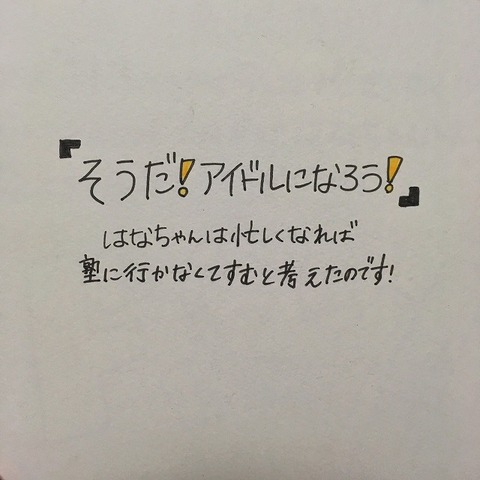 「そうだ!アイドルになろう!」
はなちゃんは忙しくなれば
塾に行かなくてすむと考えたのです!